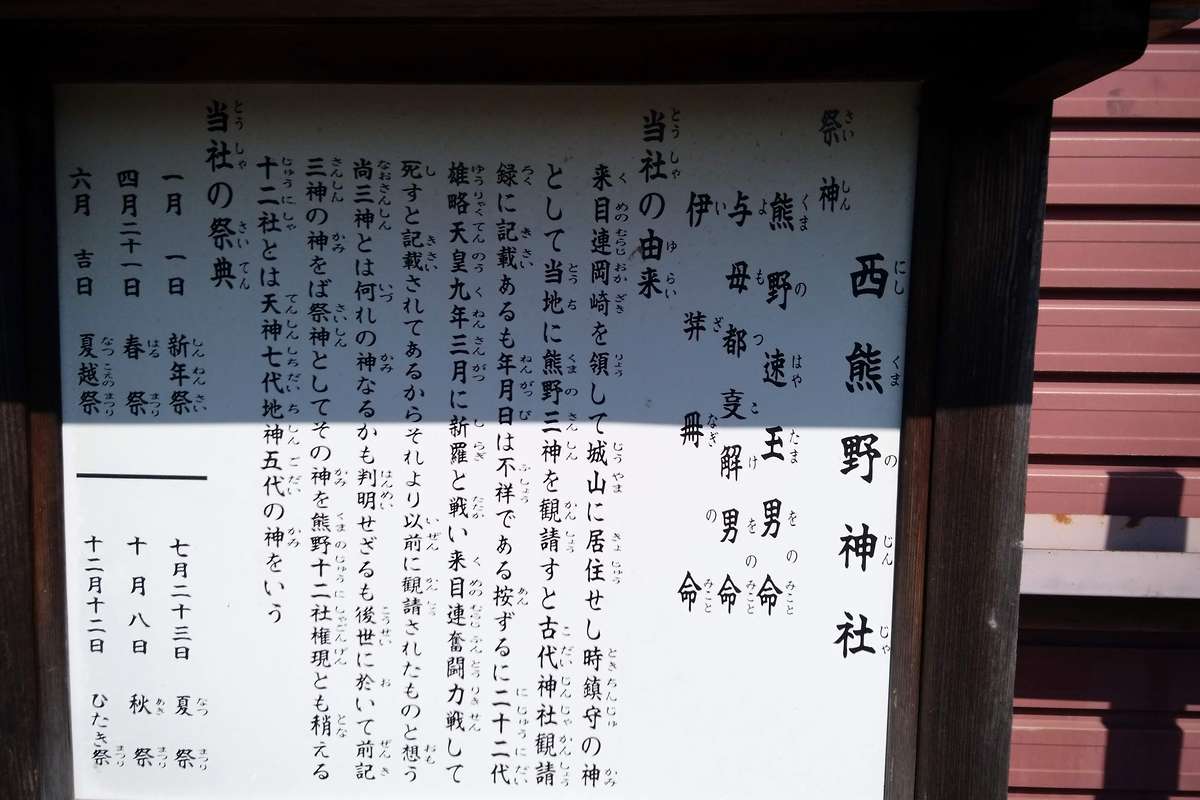 西熊野神社
祭神
熊野速玉男命
与母都夌解男命
伊弉冊命
当社の由来
来目連岡崎を領して城山に居住せし時鎮守の神
として当地に熊野三神を観請すと古代神社観請
録に記載あるも年月日は不祥である按ずるに二十二代
雄略天皇九年三月に新羅と戦い来目連奮闘力戦して
死すと記載されてあるからそれより以前に観請されたものと想う
尚三神とは何れの神なるかも判明せざるも後世に於いて前記
三神の神をば祭神としてその神を熊野十二社権現とも稍える
十二社とは天神七代地神五代の神をいう
当社の祭典
一月 一日 新年祭
四月二十一日 春祭
六月 吉日 夏越祭
七月二十三日 夏祭
十月八日 秋祭
十二月十二日 ひたき祭